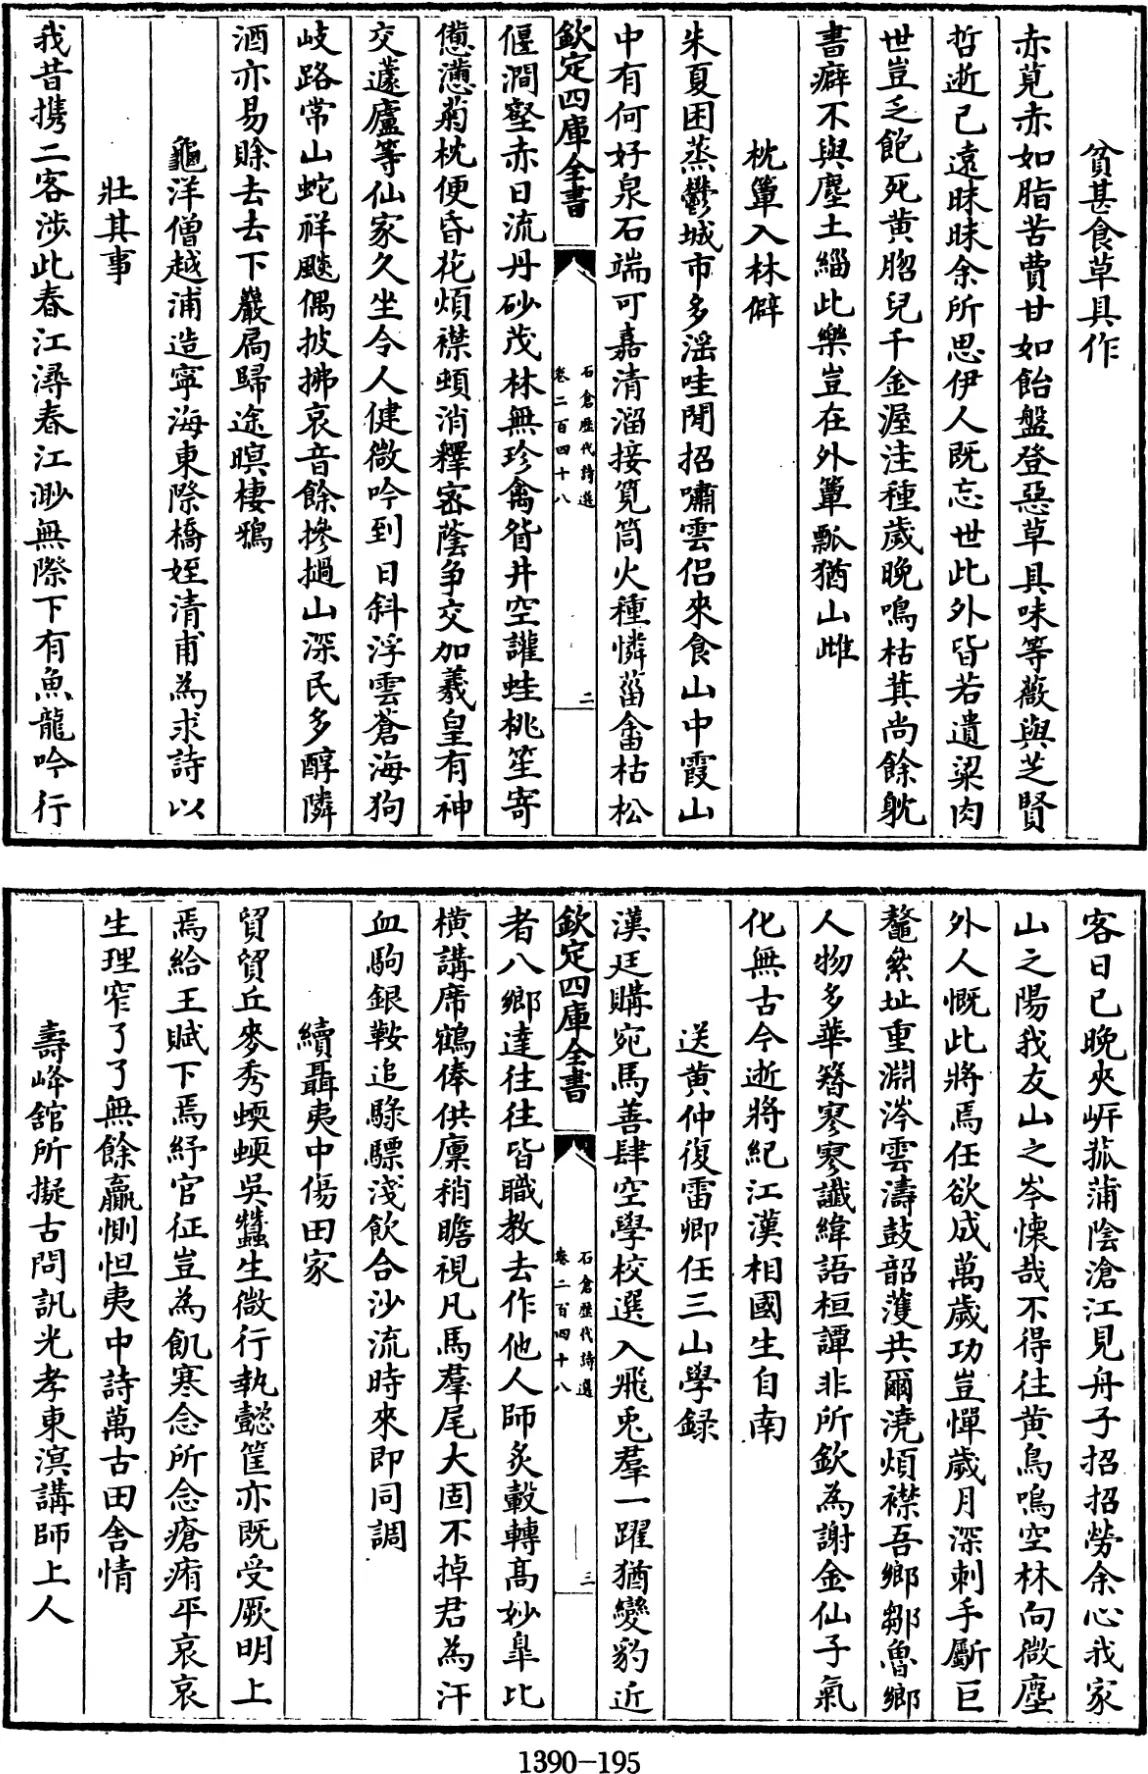 貧甚食草具作
赤莧赤如脂苦蕒甘如飴盤登惡草具味等薇與芝賢
哲逝已遠昧昧余所思伊人既忘世此外皆若遺粱肉
世豈乏飽死黄䐧兒千金渥洼種歲晚鳴枯萁尚餘躭
書癖不與塵土緇此樂豈在外簞瓢猶山雌
枕簟入林僻
朱夏困蒸鬱城市多滛哇聞招嘯雲侣來食山中霞山
中有何好泉石端可嘉清溜接筧筒火種憐菑畬枯松
欽定四庫全書
石倉歷代詩選
卷二百四十八
二
偃澗壑赤日流丹砂茂林無珍禽眢井空讙蛙桃笙寄
憊懣菊枕便昏花煩襟頓消釋宻蔭争交加羲皇有神
交蘧廬等仙家久坐令人健微吟到日斜浮雲蒼海狗
岐路常山蛇祥飈偶披拂哀音餘摻撾山深民多醇隣
酒亦易賒去去下巖扃歸途暝棲鴉
龜洋僧越浦造寧海東際橋姪清甫為求詩以
壯其事
我昔攜二客涉此春江潯春江渺無際下有魚龍吟行
客日已晚夾岸菰蒲陰滄江見舟子招招勞余心我家
山之陽我友山之岑懷哉不得往黄鳥鳴空林向微塵
外人慨此將焉任欲成萬歲功豈憚歲月深刺手斸巨
鼇絫址重淵涔雲濤鼓韶濩共爾澆煩襟吾鄉鄒魯鄉
人物多華簪寥寥讖緯語桓譚非所欽為謝金仙子氣
化無古今逝將紀江漢相國生自南
送黄仲復雷卿任三山學録
漢廷購宛馬善肆空學校選入飛兎羣一躍猶變豹近
欽定四庫全書
石倉歷代詩選
卷二百四十八
三
者八鄉達往往皆職教去作他人師炙轂轉髙妙臯比
横講席鶴俸供廩稍瞻視凡馬羣尾大固不掉君為汗
血駒銀鞍追騄驃淺飲合沙流時來即同調
續聶夷中傷田家
貿貿丘麥秀蝡蝡吳蠶生微行執懿筐亦既受厥明上
焉給王賦下焉紓官征豈為飢寒念所念瘡痏平哀哀
生理窄了了無餘贏惻怛夷中詩萬古田舍情
壽峰舘所擬古問訊光孝東溟講師上人
1390-195